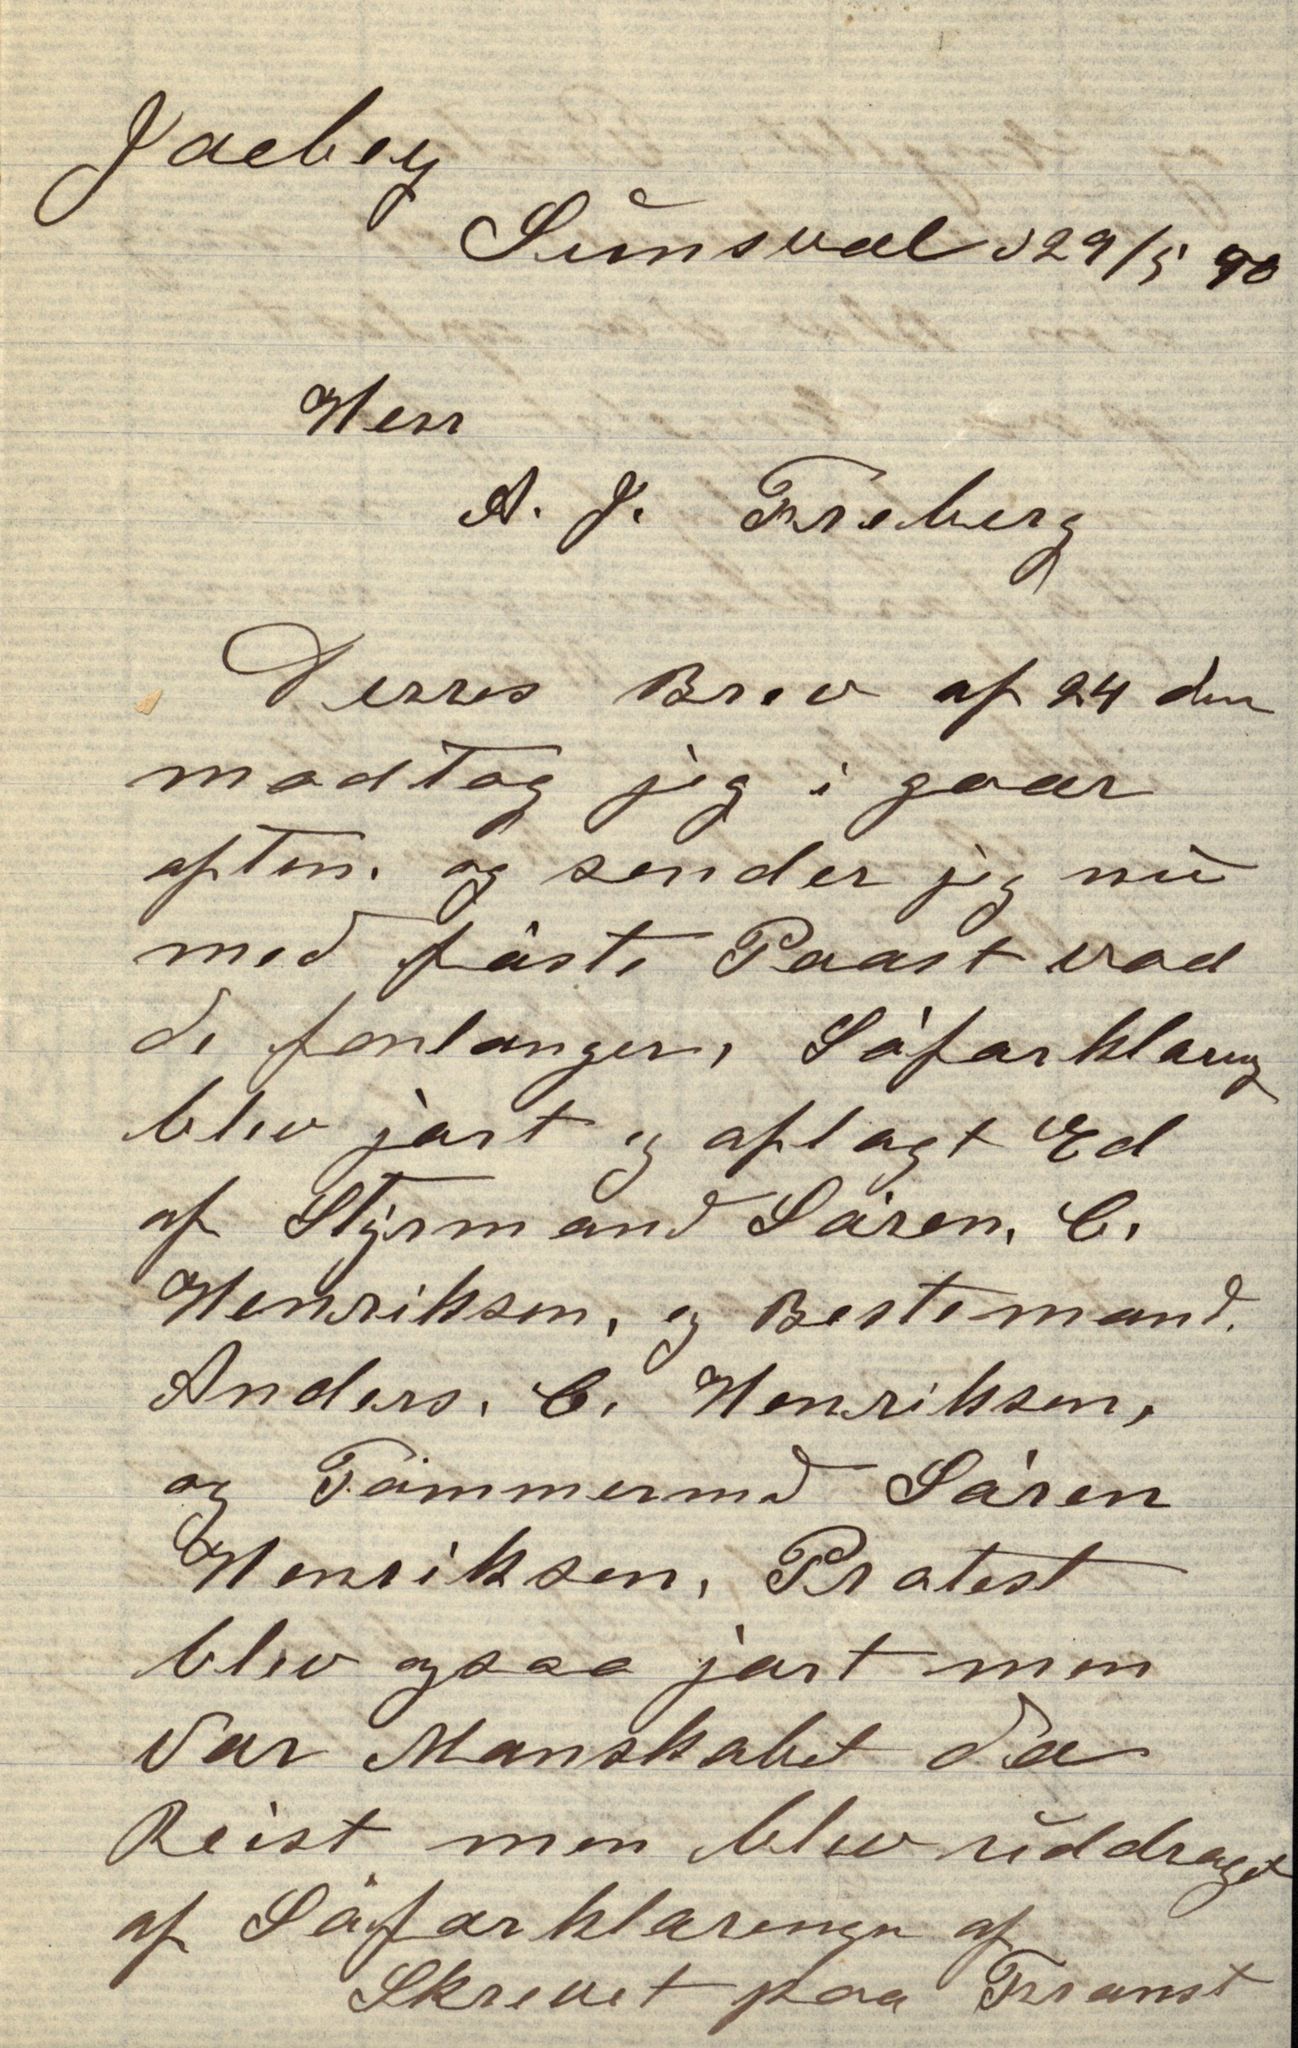 Jacbey
Sunsval d 29/5 90
Herr
A. J. Freberg
Derres Brev af 24 den
modtog jeg i gaar
aften. og sender jeg nu
med föste Paast vad
de forlanger, Söfarklaring
blev jort og aflagt Ed
af Styrmand Sören. C.
Henriksen, og Bestemand.
Anders. C. Henriksen,
og Tömmermd Sören
Henriksen, Protest
blev ogsaa jort men
var Manskabet da
Reist men blev uddraget
af Söfarklarengen af
Skrevet paa Fransk